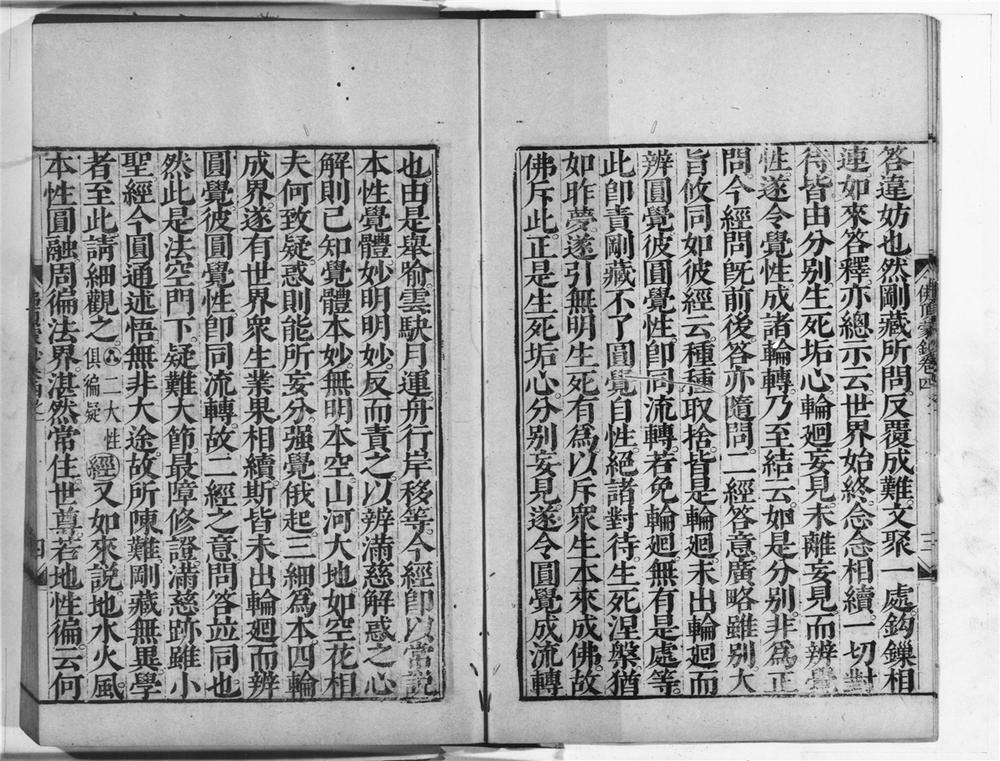 答違妨也然剛藏所問反覆成難文聚一處鈎鏁相
連如來答釋亦總示云世界始終念念相續一切對
待皆由分别生死垢心輪廻妄見未離妄見而辨覺
性遂令覺性成諸輪轉乃至結云如是分别非爲正
問今經問旣前後答亦隨問二經答意廣略雖别大
旨攸同如彼經云種種取捨皆是輪廻未出輪廻而
辨圓覺彼圓覺性卽同流轉若免輪廻無有是處等
此卽責剛藏不了圓覺自性絕諸對待生死涅槃猶
如昨夢遂引無明生死有爲以斥衆生本來成佛故
佛斥此正是生死垢心分别妄見遂令圓覺成流轉
也由是舉喻雲駃月運舟行岸移等今經卽以常說
本性覺體妙明明妙反而責之以辨滿慈解惑之心
解則已知覺體本妙無明本空山河大地如空花相
夫何致疑惑則能所妄分强覺俄起三細爲本四輪
成界遂有世界衆生業果相續斯皆未出輪廻而辨
圓覺彼圓覺性卽同流轉故二經之意問答竝同也
然此是法空門下疑難大節最障修證滿慈跡雖小
聖經今圓通述悟無非大途故所陳難剛藏無異學
者至此請細觀之二大性俱徧疑經又如來說地水火風
本性圓融周徧法界湛然常住世尊若地性徧云何